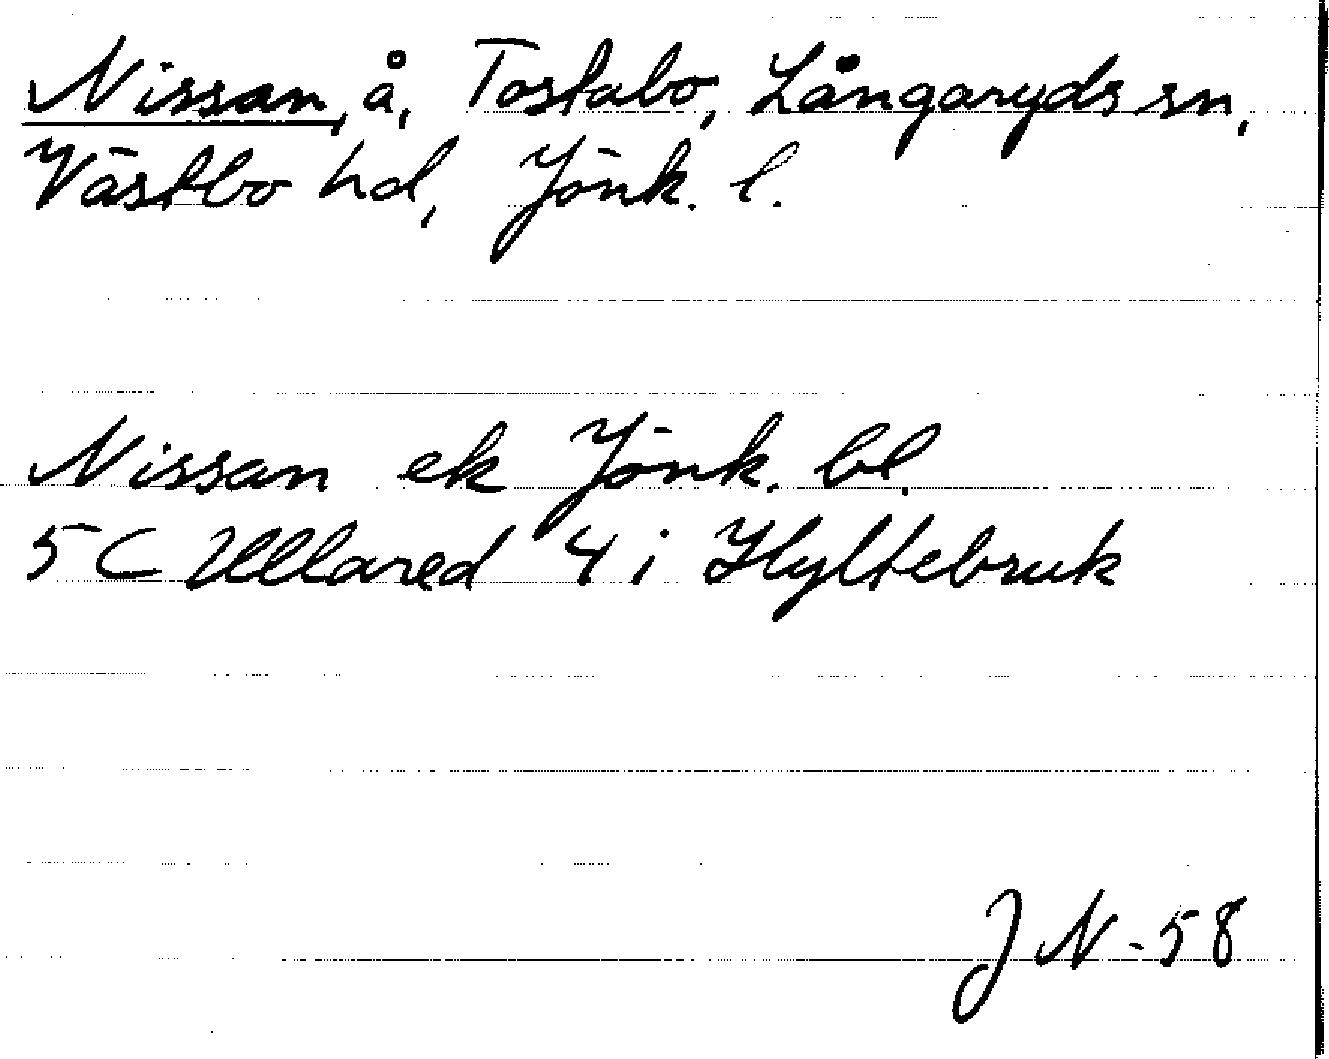 Nissan, å, Tostabo, Långaryds sn,
Västbo hd, Jönk. l.
Nissan ek Jönk. bl.
5 C Ullared 4 i Hyltebruk
J N - 58